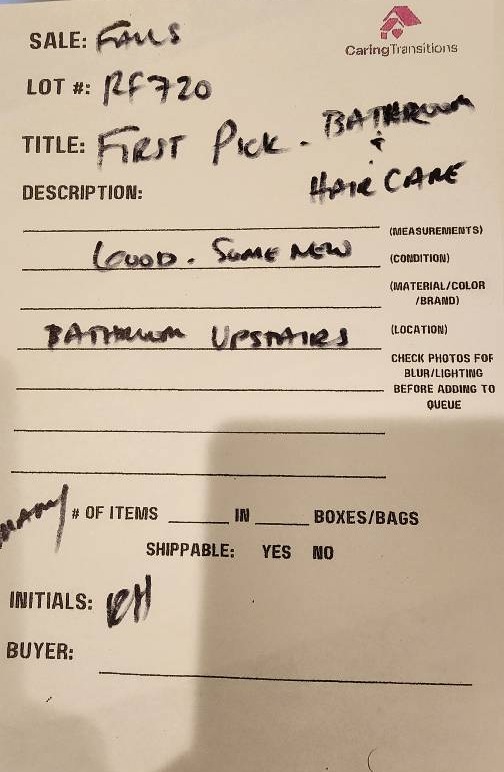 SALE: FALLS
CaringTransitions
LOT #: RF720
TITLE: FIRST PICK - BATHROOM
+
HAIR CARE
DESCRIPTION:
(MEASUREMENTS)
GOOD. SOME NEW (CONDITION)
(MATERIAL/COLOR
/BRAND)
BATHROOM UPSTAIRS (LOCATION)
CHECK PHOTOS FOR
BLUR/LIGHTING
BEFORE ADDING TO
QUEUE
MANY # OF ITEMS ____ IN ____ BOXES/BAGS
SHIPPABLE: YES NO
INITIALS: RH
BUYER: